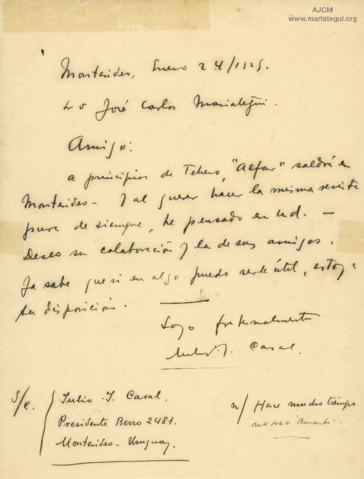 AJCM
www.mariategui.org
Montevideo, Enero 24/1929.
José Carlos Mariategui.
Amigo:
a principios de Febrero, "Alfar" saldrá en
Montevideo - Y al querer hacer la misma revista
pura de siempre, he pensado en ud. -
Deseo su colaboración y la de sus amigos.
Ya sabe que si en algo puedo serle útil, estoy a
su disposición.
Suyo fraternalmente
Julio J. Casal.
S/c.
Julio J. Casal.
Presidente Berro 2481.
Montevideo - Uruguay.
n/ Hace mucho tiempo
no reci